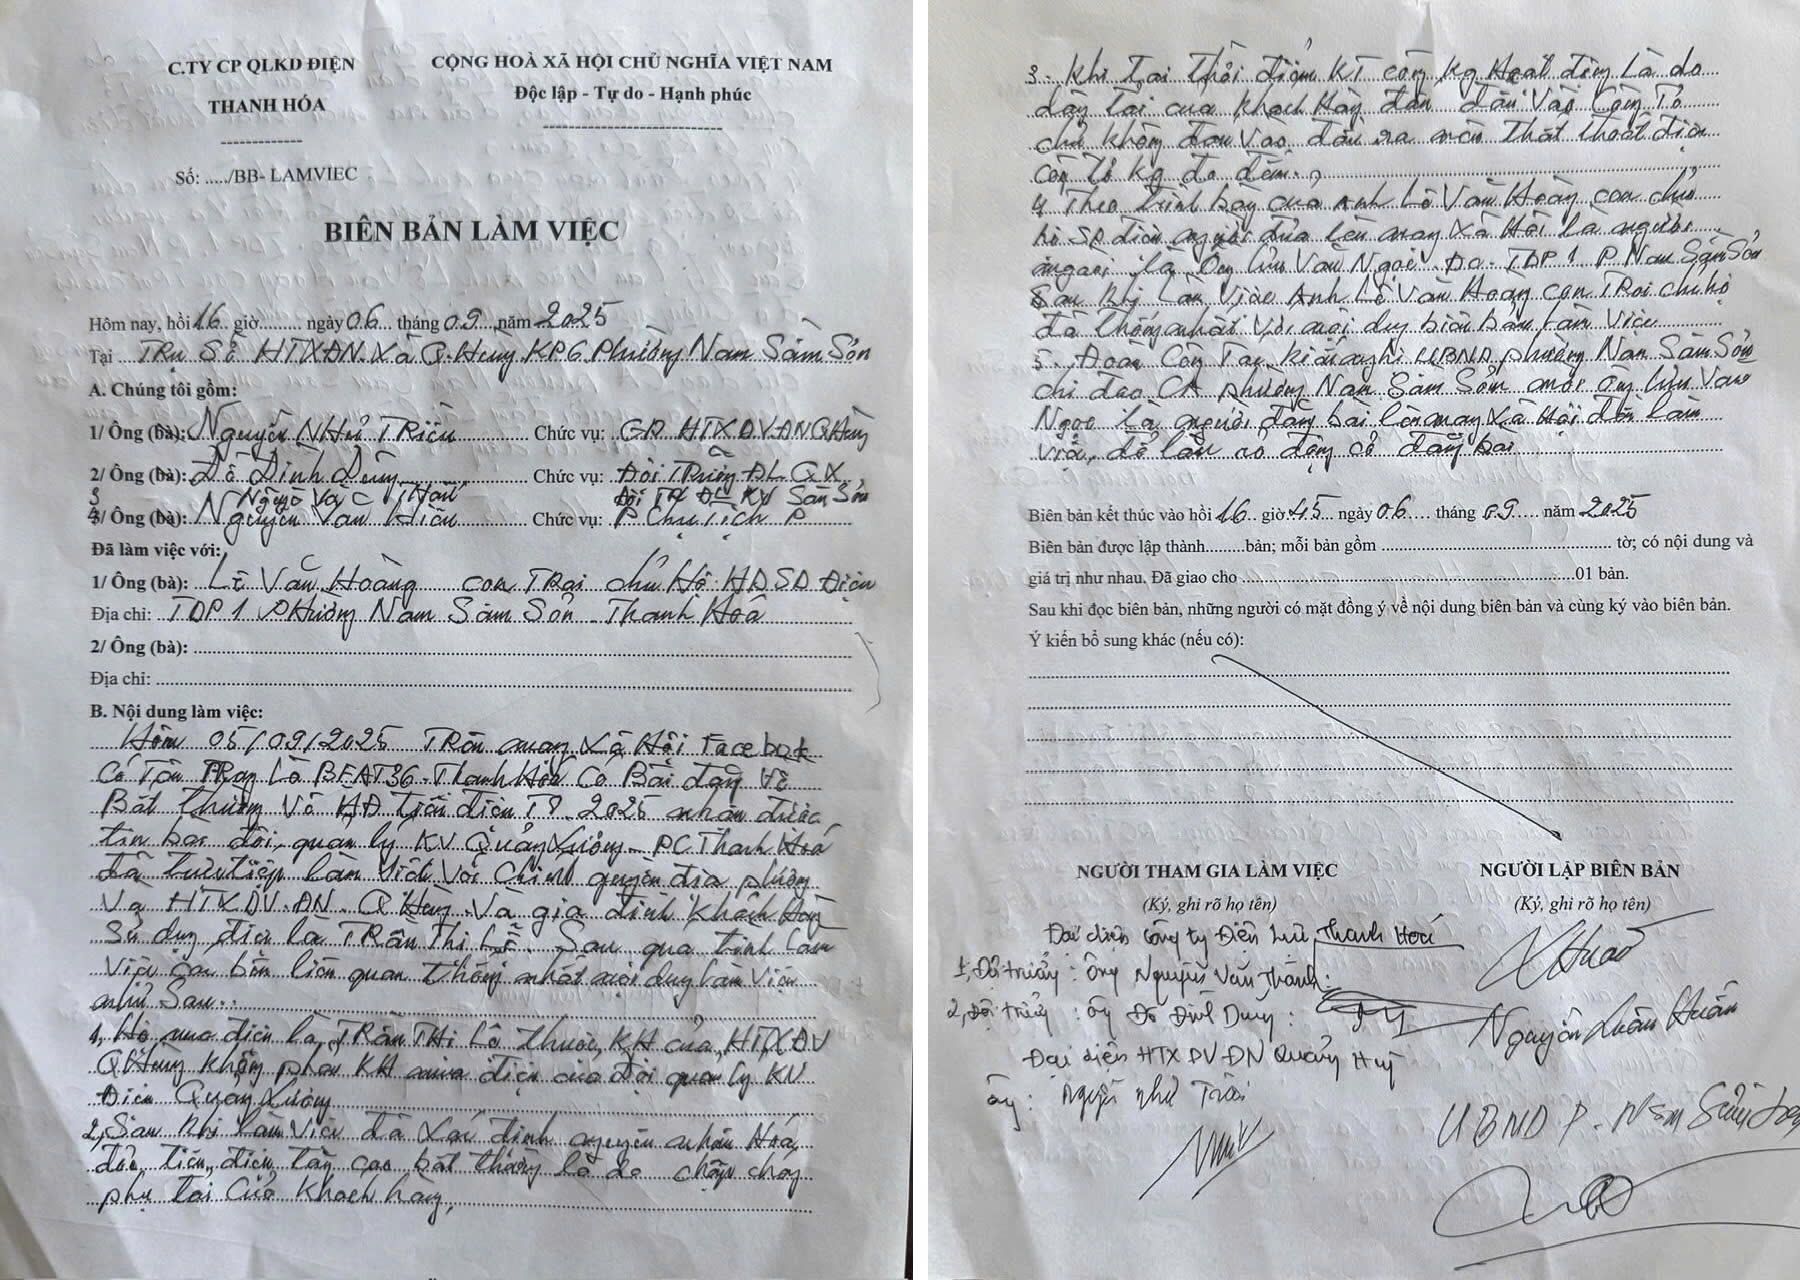 C.TY CP QLKD ĐIỆN
THANH HÓA
-------------
Số: ...../BB- LAMVIEC
CỘNG HOÀ XÃ HỘI CHỦ NGHĨA VIỆT NAM
Độc lập - Tự do - Hạnh phúc
-----------------------------
BIÊN BẢN LÀM VIỆC
Hôm nay, hồi 16 giờ......... ngày 06 tháng 09 năm 2025
Tại Trụ Sở HTXĐN xã Q. Hùng KP6 Phường Nam Sầm Sơn
A. Chúng tôi gồm:
1/ Ông (bà): Nguyễn Như Triều Chức vụ: GĐ HTXDVĐN Q Hùng
2/ Ông (bà): Đỗ Đình Dũng Chức vụ: Đội Trưởng ĐL QX
3 Nguyễn Văn Đội KV Sầm Sơn
4/ Ông (bà): Nguyễn Văn Hiếu Chức vụ: P Chủ Tịch P
Đã làm việc với:
1/ Ông (bà): Lê Văn Hoàng con trai chủ Hộ HĐSD Điện
Địa chỉ: TDP 1 Phường Nam Sầm Sơn - Thanh Hoá
2/ Ông (bà):
Địa chỉ:
B. Nội dung làm việc:
Hôm 05/09/2025 Trên mạng Xã Hội Facebook
Có Tên Trang Là BEAT36 - Thanh Hoá Có Bài đăng về
Bất thường về HĐ tiền điện T8.2025 nhận được
tin báo đội quản lý KV Quảng Xương - PC Thanh Hoá
đã trực tiếp làm việc với Chính quyền địa phương
Và HTXDV-ĐN Q Hùng và gia đình Khách Hàng
Sử dụng điện là Trần Thị Lê. Sau quá trình làm
việc các bên liên quan thống nhất nội dung làm việc
như Sau:
1, Hộ mua điện là Trần Thị Lê thuộc KH của HTXDV
Q Hùng không phải KH mua điện của đội quản lý KV
Điện Quảng Xương
2, Sau khi làm việc đã xác định nguyên nhân Hoá
đơn tiền điện tăng cao bất thường là do chập cháy
phụ tải của khách hàng,
3. Khi tại thời điểm KT công kg Hoạt động là do
dây tải của khách Hàng đấu đầu vào Công Tơ
chứ không đấu vào đầu ra nên thất thoát điện
công tơ kg đo đếm.
4 Theo trình bày của Anh Lê Văn Hoàng con chủ
hộ SD điện người đưa lên mạng Xã Hội là người
ngoài là Ông Lưu Văn Ngọc - Đc - TDP 1 P Nam Sầm Sơn
Sau khi làm việc Anh Lê Văn Hoàng con Trai chủ hộ
đã thống nhất với nội dung biên bản làm việc
5. Đoàn Công Tác kiến nghị UBND phường Nam Sầm Sơn
chỉ đạo CA phường Nam Sầm Sơn mời ông Lưu Văn
Ngọc là người đăng bài lên mạng xã Hội đến làm
việc, để làm rõ động cơ đăng bài
Biên bản kết thúc vào hồi 16 giờ 45 ngày 06 tháng 09 năm 2025
Biên bản được lập thành.........bản; mỗi bản gồm ......... tờ; có nội dung và
giá trị như nhau. Đã giao cho .........01 bản.
Sau khi đọc biên bản, những người có mặt đồng ý về nội dung biên bản và cùng ký vào biên bản.
Ý kiến bổ sung khác (nếu có):
NGƯỜI THAM GIA LÀM VIỆC
(Ký, ghi rõ họ tên)
Đại diện Công ty Điện Lực Thanh Hoá
1, Đội trưởng: Ông Nguyễn Văn Thành:
2, Đội trưởng: Ông Đỗ Đình Dũng:
Đại diện HTX DV ĐN Quảng Hùng
Ông: Nguyễn Như Triều
NGƯỜI LẬP BIÊN BẢN
(Ký, ghi rõ họ tên)
Nguyễn Xuân Huấn
UBND P. Nam Sầm Sơn